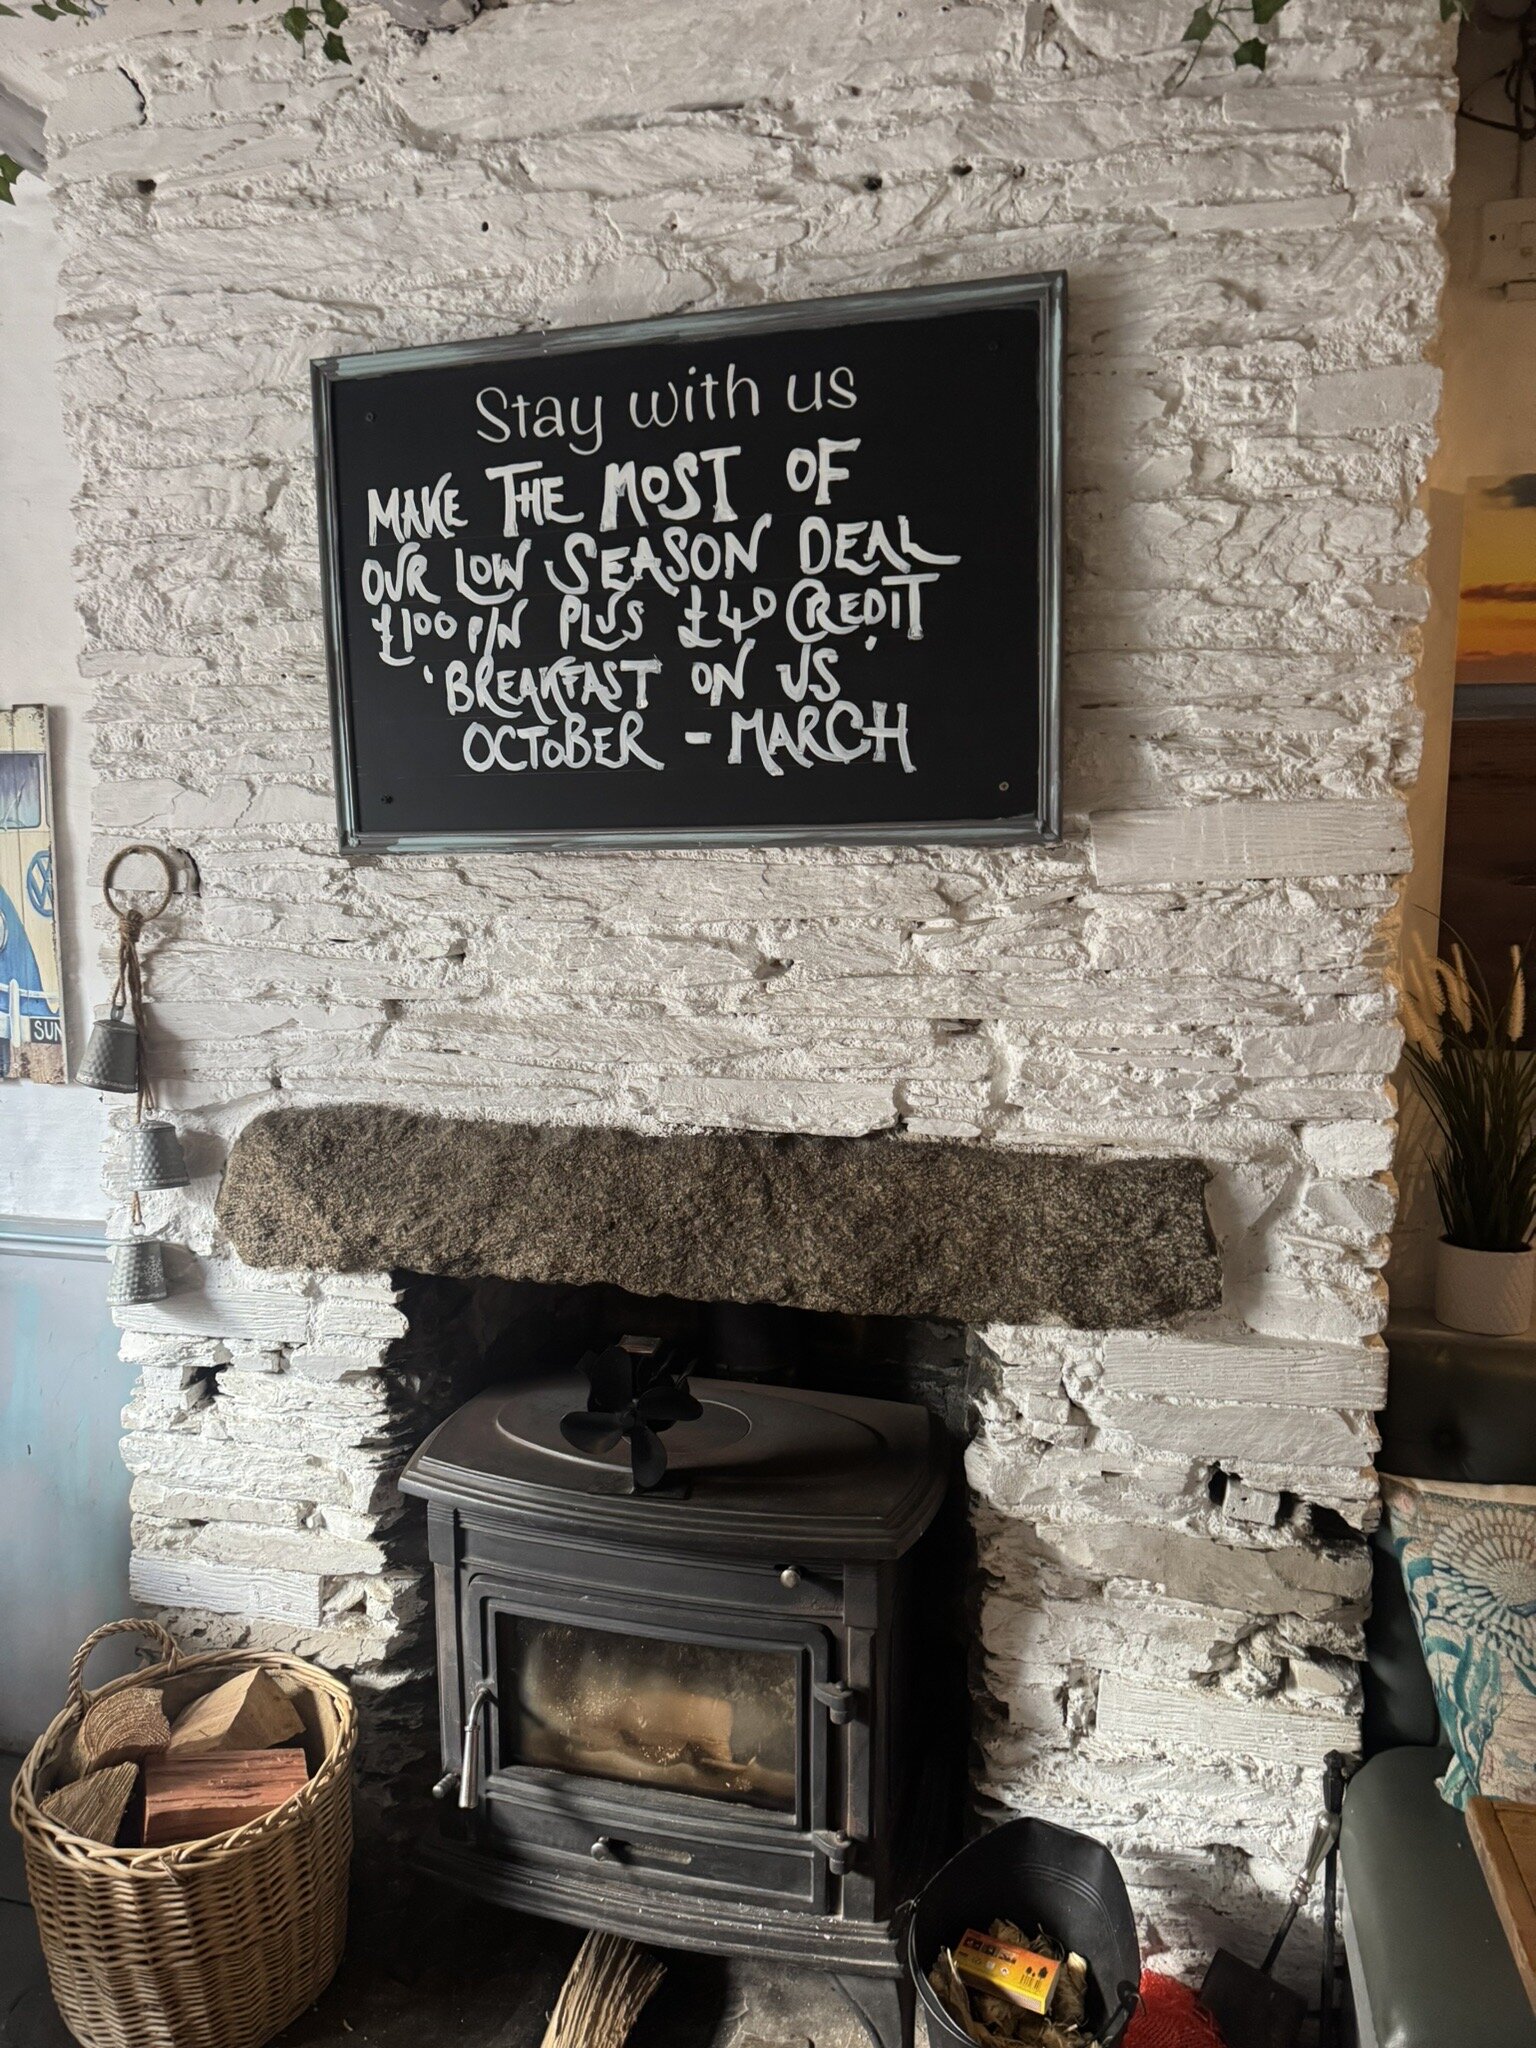 Stay with us
MAKE THE MOST OF
OUR LOW SEASON DEAL
£100 P/N PLUS £40 CREDIT
'BREAKFAST ON US'
OCTOBER - MARCH
SUN